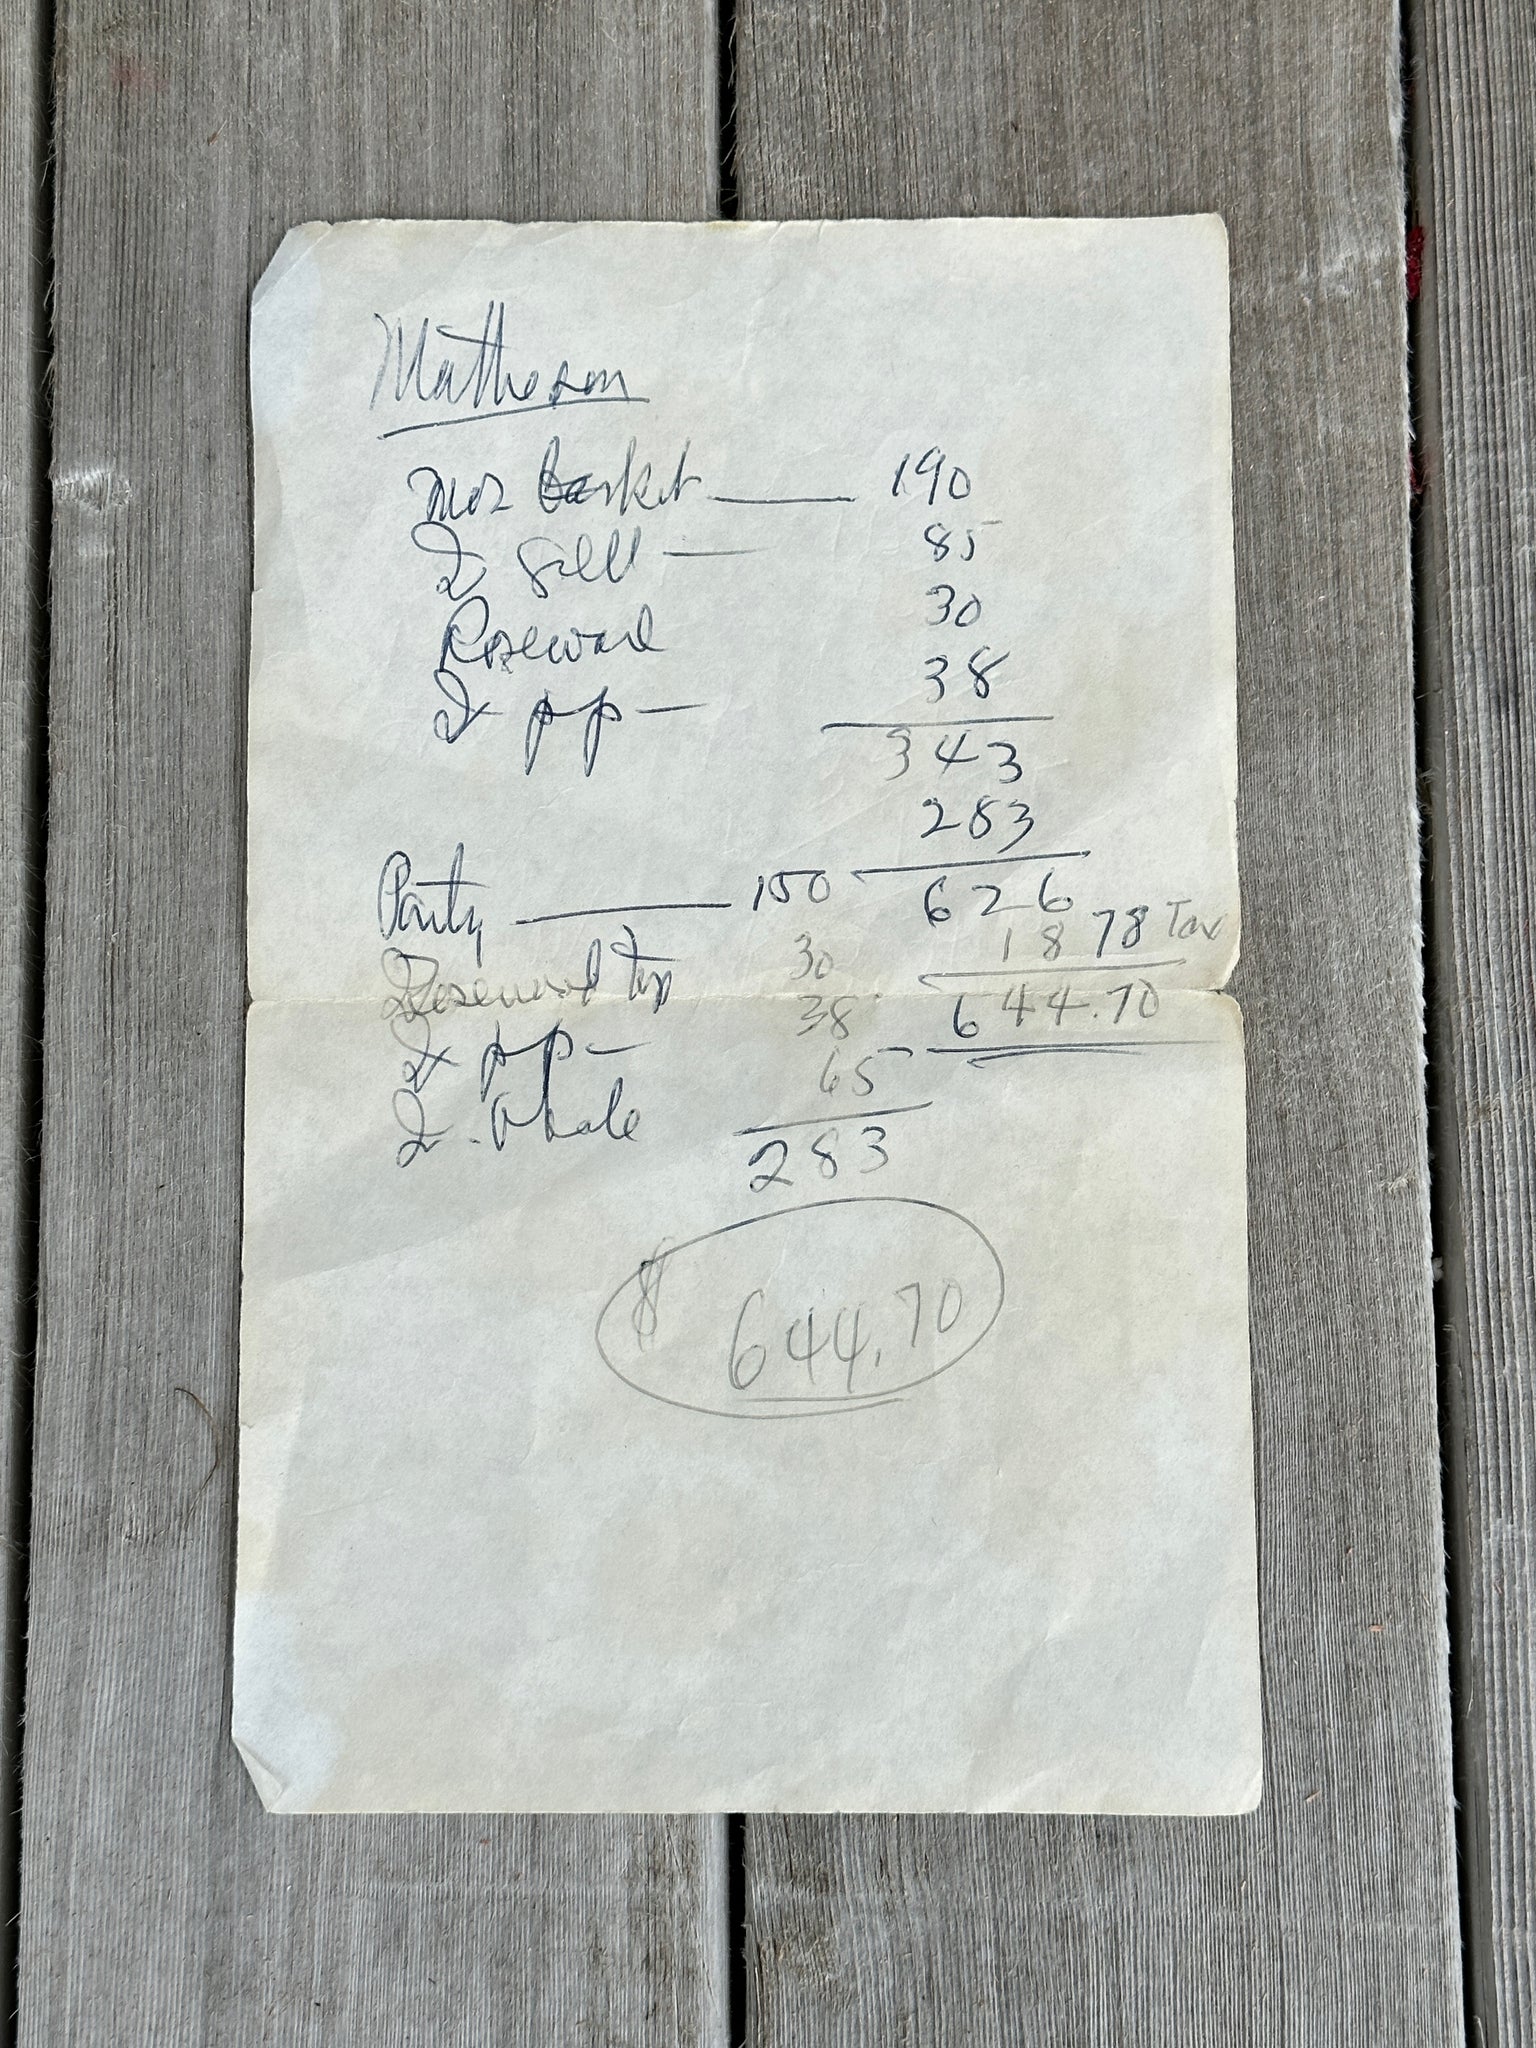 Matheson
basket 190
85
Rosewood 30
pp 38
343
283
Party 150 626
Rosewood Top 30 18 78 Tax
pp 38 644.70
Whale 65
283
$ 644.70